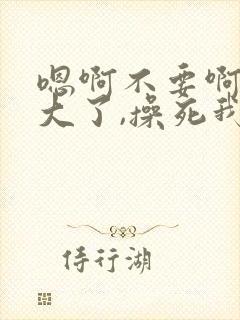 嗯啊不要啊
大了,操死我
侍行湖